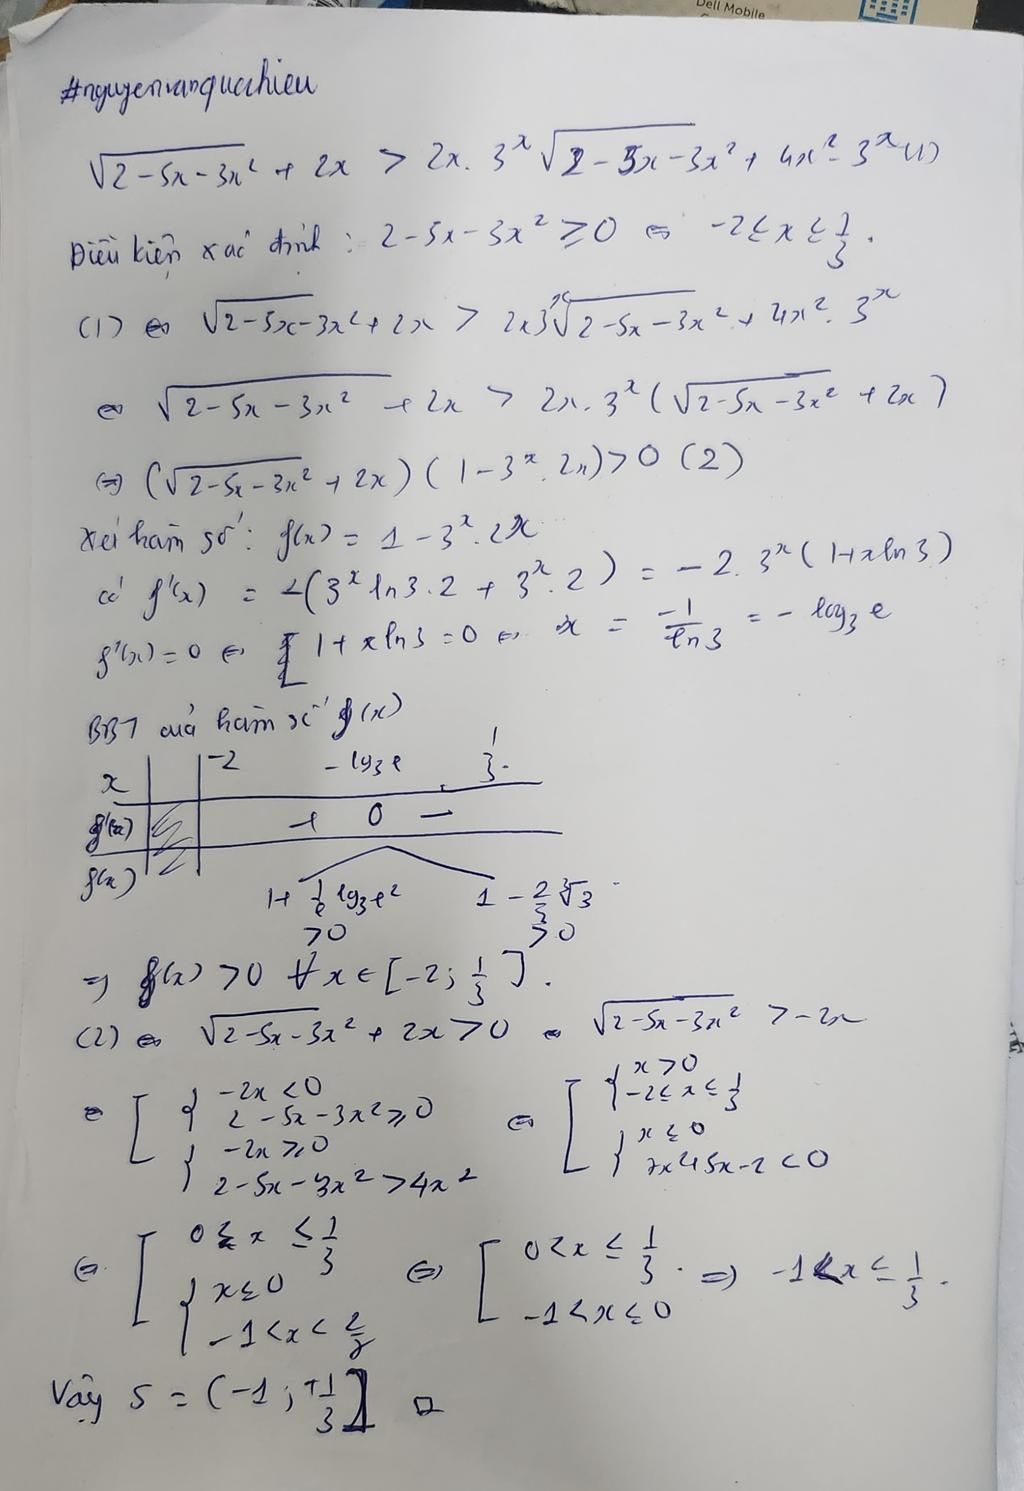 Dell Mobile
#nguyenvanquahieu
√(2-5x-3x²) + 2x > 2x. 3ˣ √(2-5x-3x²) + 4x². 3ˣ (1)
Điều kiện xác định : 2-5x-3x² ≥ 0 ⇔ -2 ≤ x ≤ 1/3.
(1) ⇔ √(2-5x-3x²) + 2x > 2x3ˣ√(2-5x-3x²) + 4x². 3ˣ
⇔ √(2-5x-3x²) + 2x > 2x. 3ˣ (√(2-5x-3x²) + 2x)
⇔ (√(2-5x-3x²) + 2x) (1-3ˣ.2x) > 0 (2)
Xét hàm số : f(x) = 1 - 3ˣ.2x
có f'(x) = -(3ˣ ln3.2 + 3ˣ.2) = -2. 3ˣ (1+xln3)
f'(x) = 0 ⇔ [ 1+xln3 = 0 ⇔ x = -1/ln3 = -log₃e
BBT của hàm số f(x)
x -2 -log₃e 1/3.
f'(x) + 0 -
f(x) 1+ 1/e log₃e² 1 - 2/3 ∛3
>0 >0
⇒ f(x) > 0 ∀x ∈ [-2; 1/3].
(2) ⇔ √(2-5x-3x²) + 2x > 0 ⇔ √(2-5x-3x²) > -2x
⇔ [ { -2x < 0 ⇔ [ { x > 0
2-5x-3x² ≥ 0 -2 ≤ x ≤ 1/3
{ -2x ≥ 0 { x ≤ 0
2-5x-3x² > 4x² 7x²+5x-2 < 0
⇔ [ 0 < x ≤ 1/3 ⇔ [ 0 < x ≤ 1/3 . ⇒ -1 < x ≤ 1/3.
{ x ≤ 0 -1 < x ≤ 0
-1 < x < 2/7
Vậy S = (-1; +1/3] □